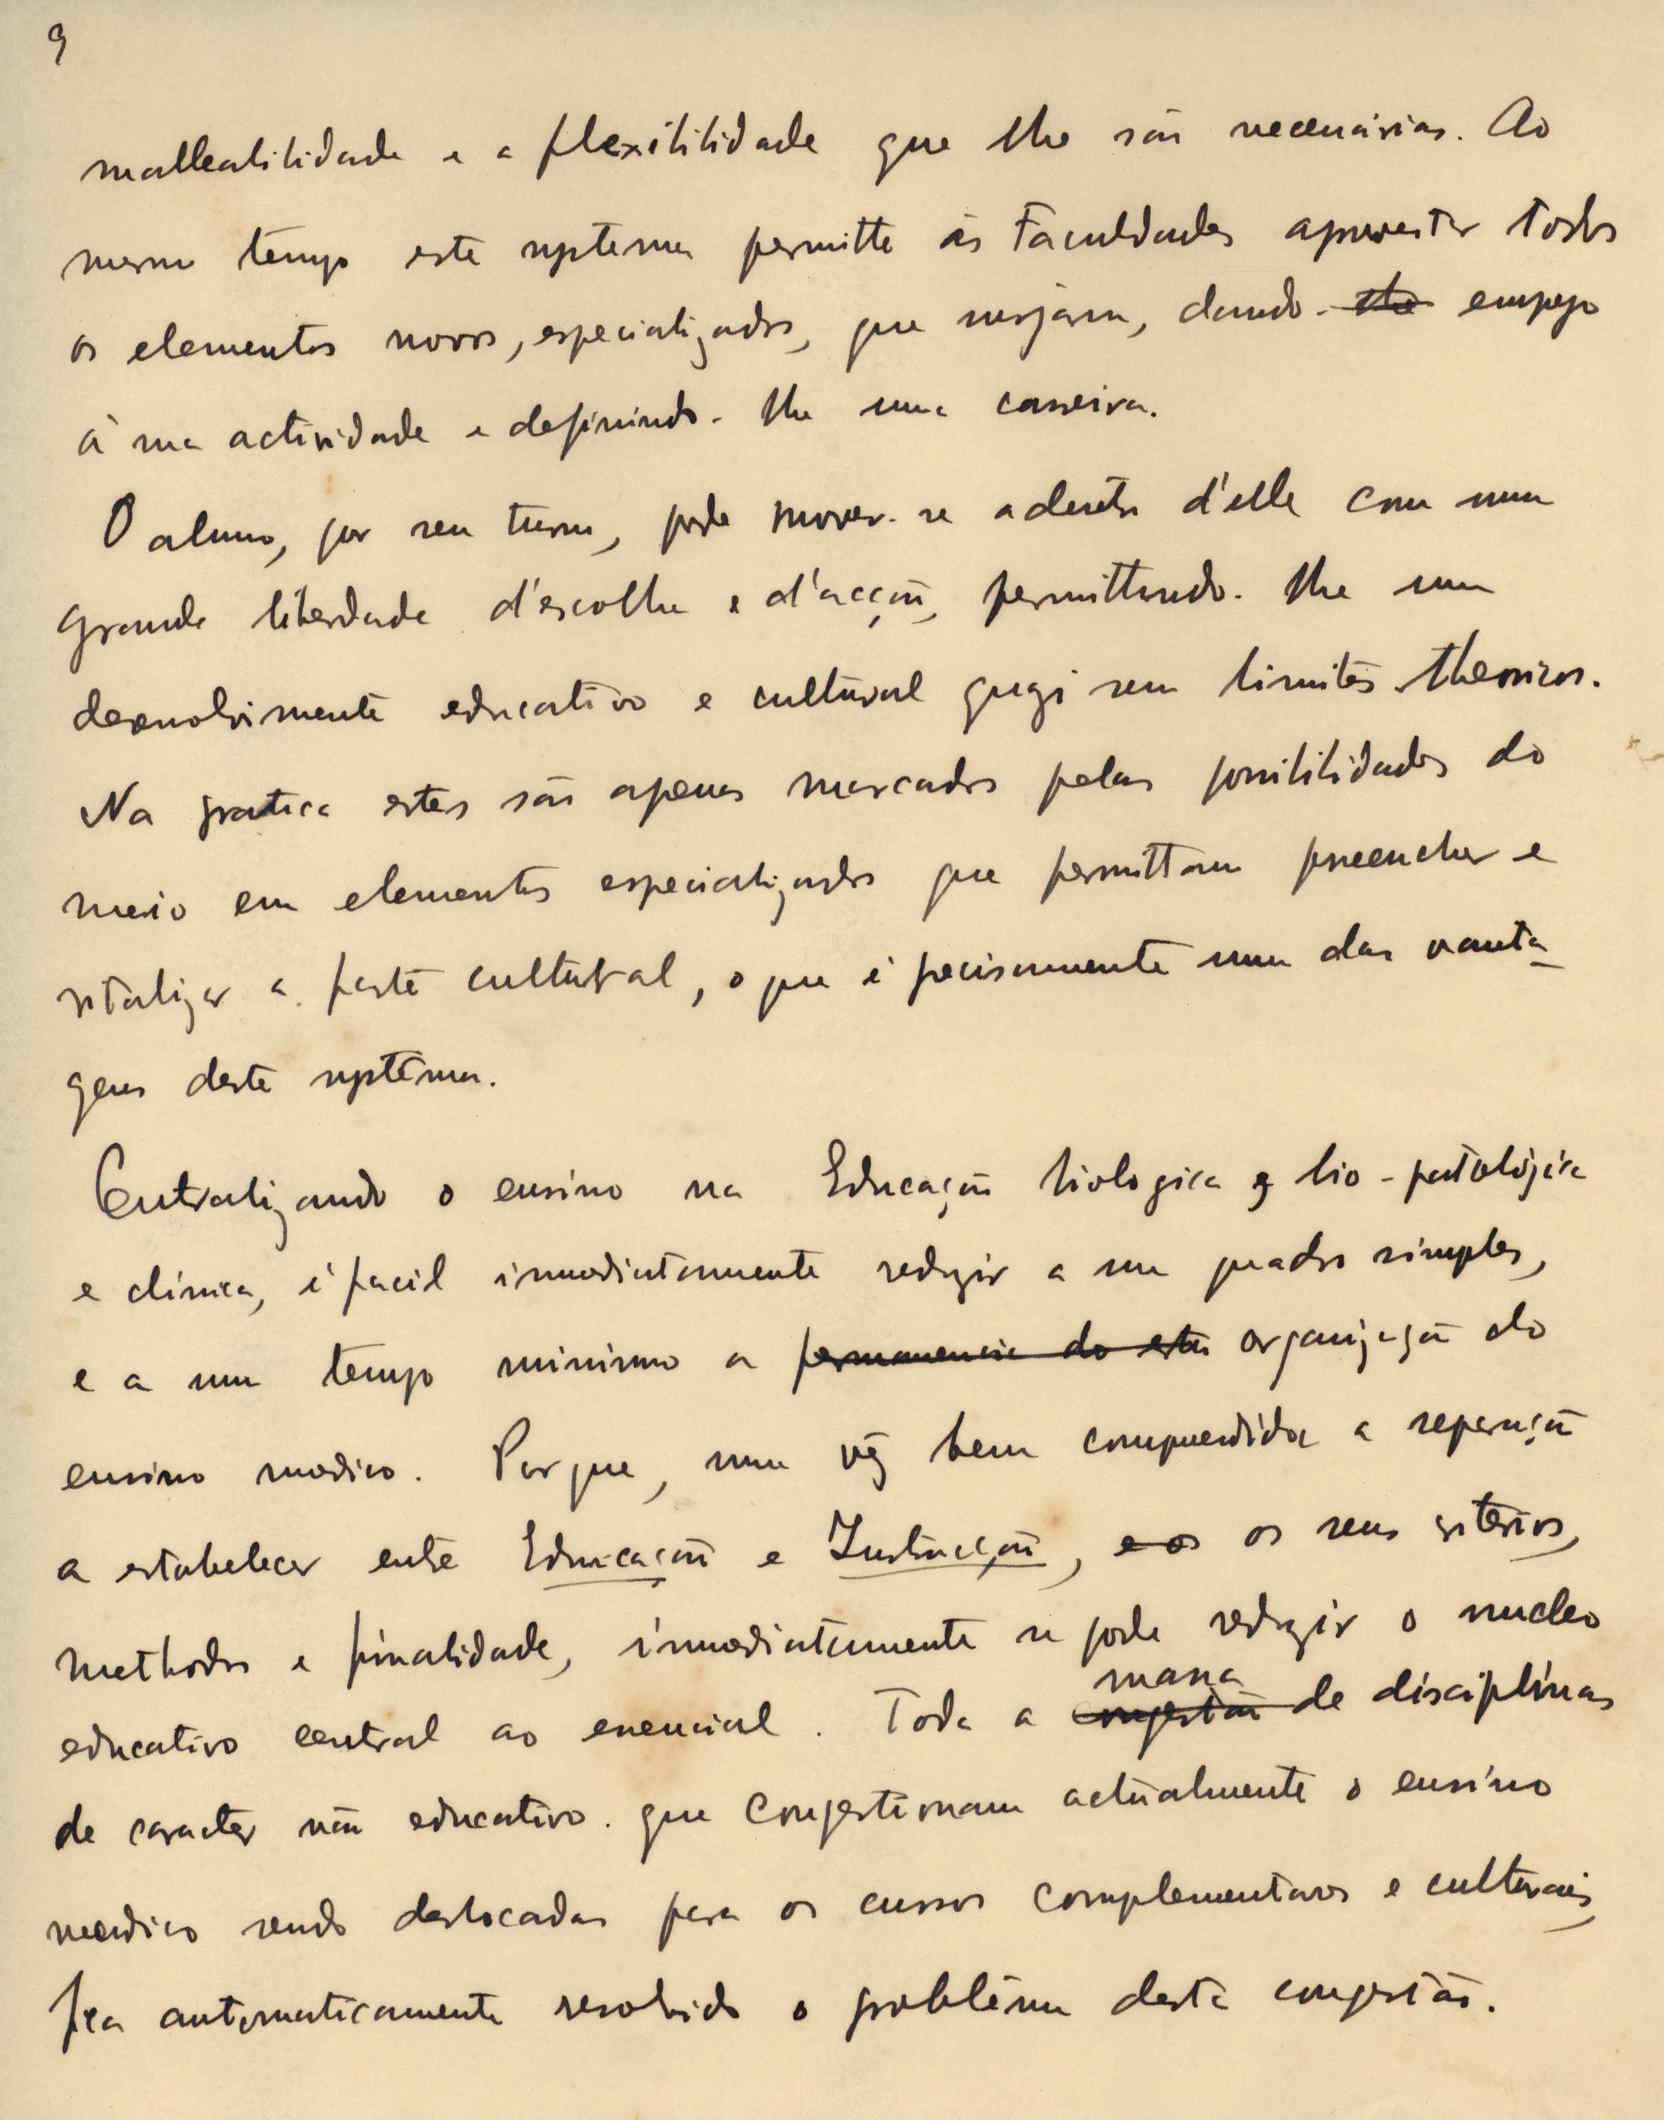 9
malleabilidade e a flexibilidade que lhe são necessárias. Ao
mesmo tempo este systema permitte ás Faculdades aproveitar todos
os elementos novos, especializados, que surjam, dando-lhe emprego
á sua actividade e definindo-lhe uma carreira.
O aluno, por seu turno, pode mover-se adentro d'elle com uma
grande liberdade d'escolha e d'acção, permittindo-lhe um
desenvolvimento educativo e cultural quazi sem limites theoricos.
Na pratica estes são apenas marcados pelas possibilidades do
meio em elementos especializados que permittam preencher e
vitalizar a parte cultural, o que é precisamente uma das vanta-
gens deste systema.
Centralizando o ensino na Educação biologica e bio-patológica
e clinica, é facil immediatamente reduzir a um quadro simples,
e a um tempo minimo a permanencia do estu organização do
ensino medico. Porque, uma vêz bem comprendida a separação
a estabelecer entre Educação e Instrucção, e os os seus criterios,
methodos e finalidade, immediatamente se pode reduzir o nucleo
educativo central ao essencial. Toda a congestão massa de disciplinas
de caracter não educativo que congestionam actualmente o ensino
medico sendo deslocadas para os cursos complementares e culturais,
fica automaticamente resolvido o problêma desta congestão.